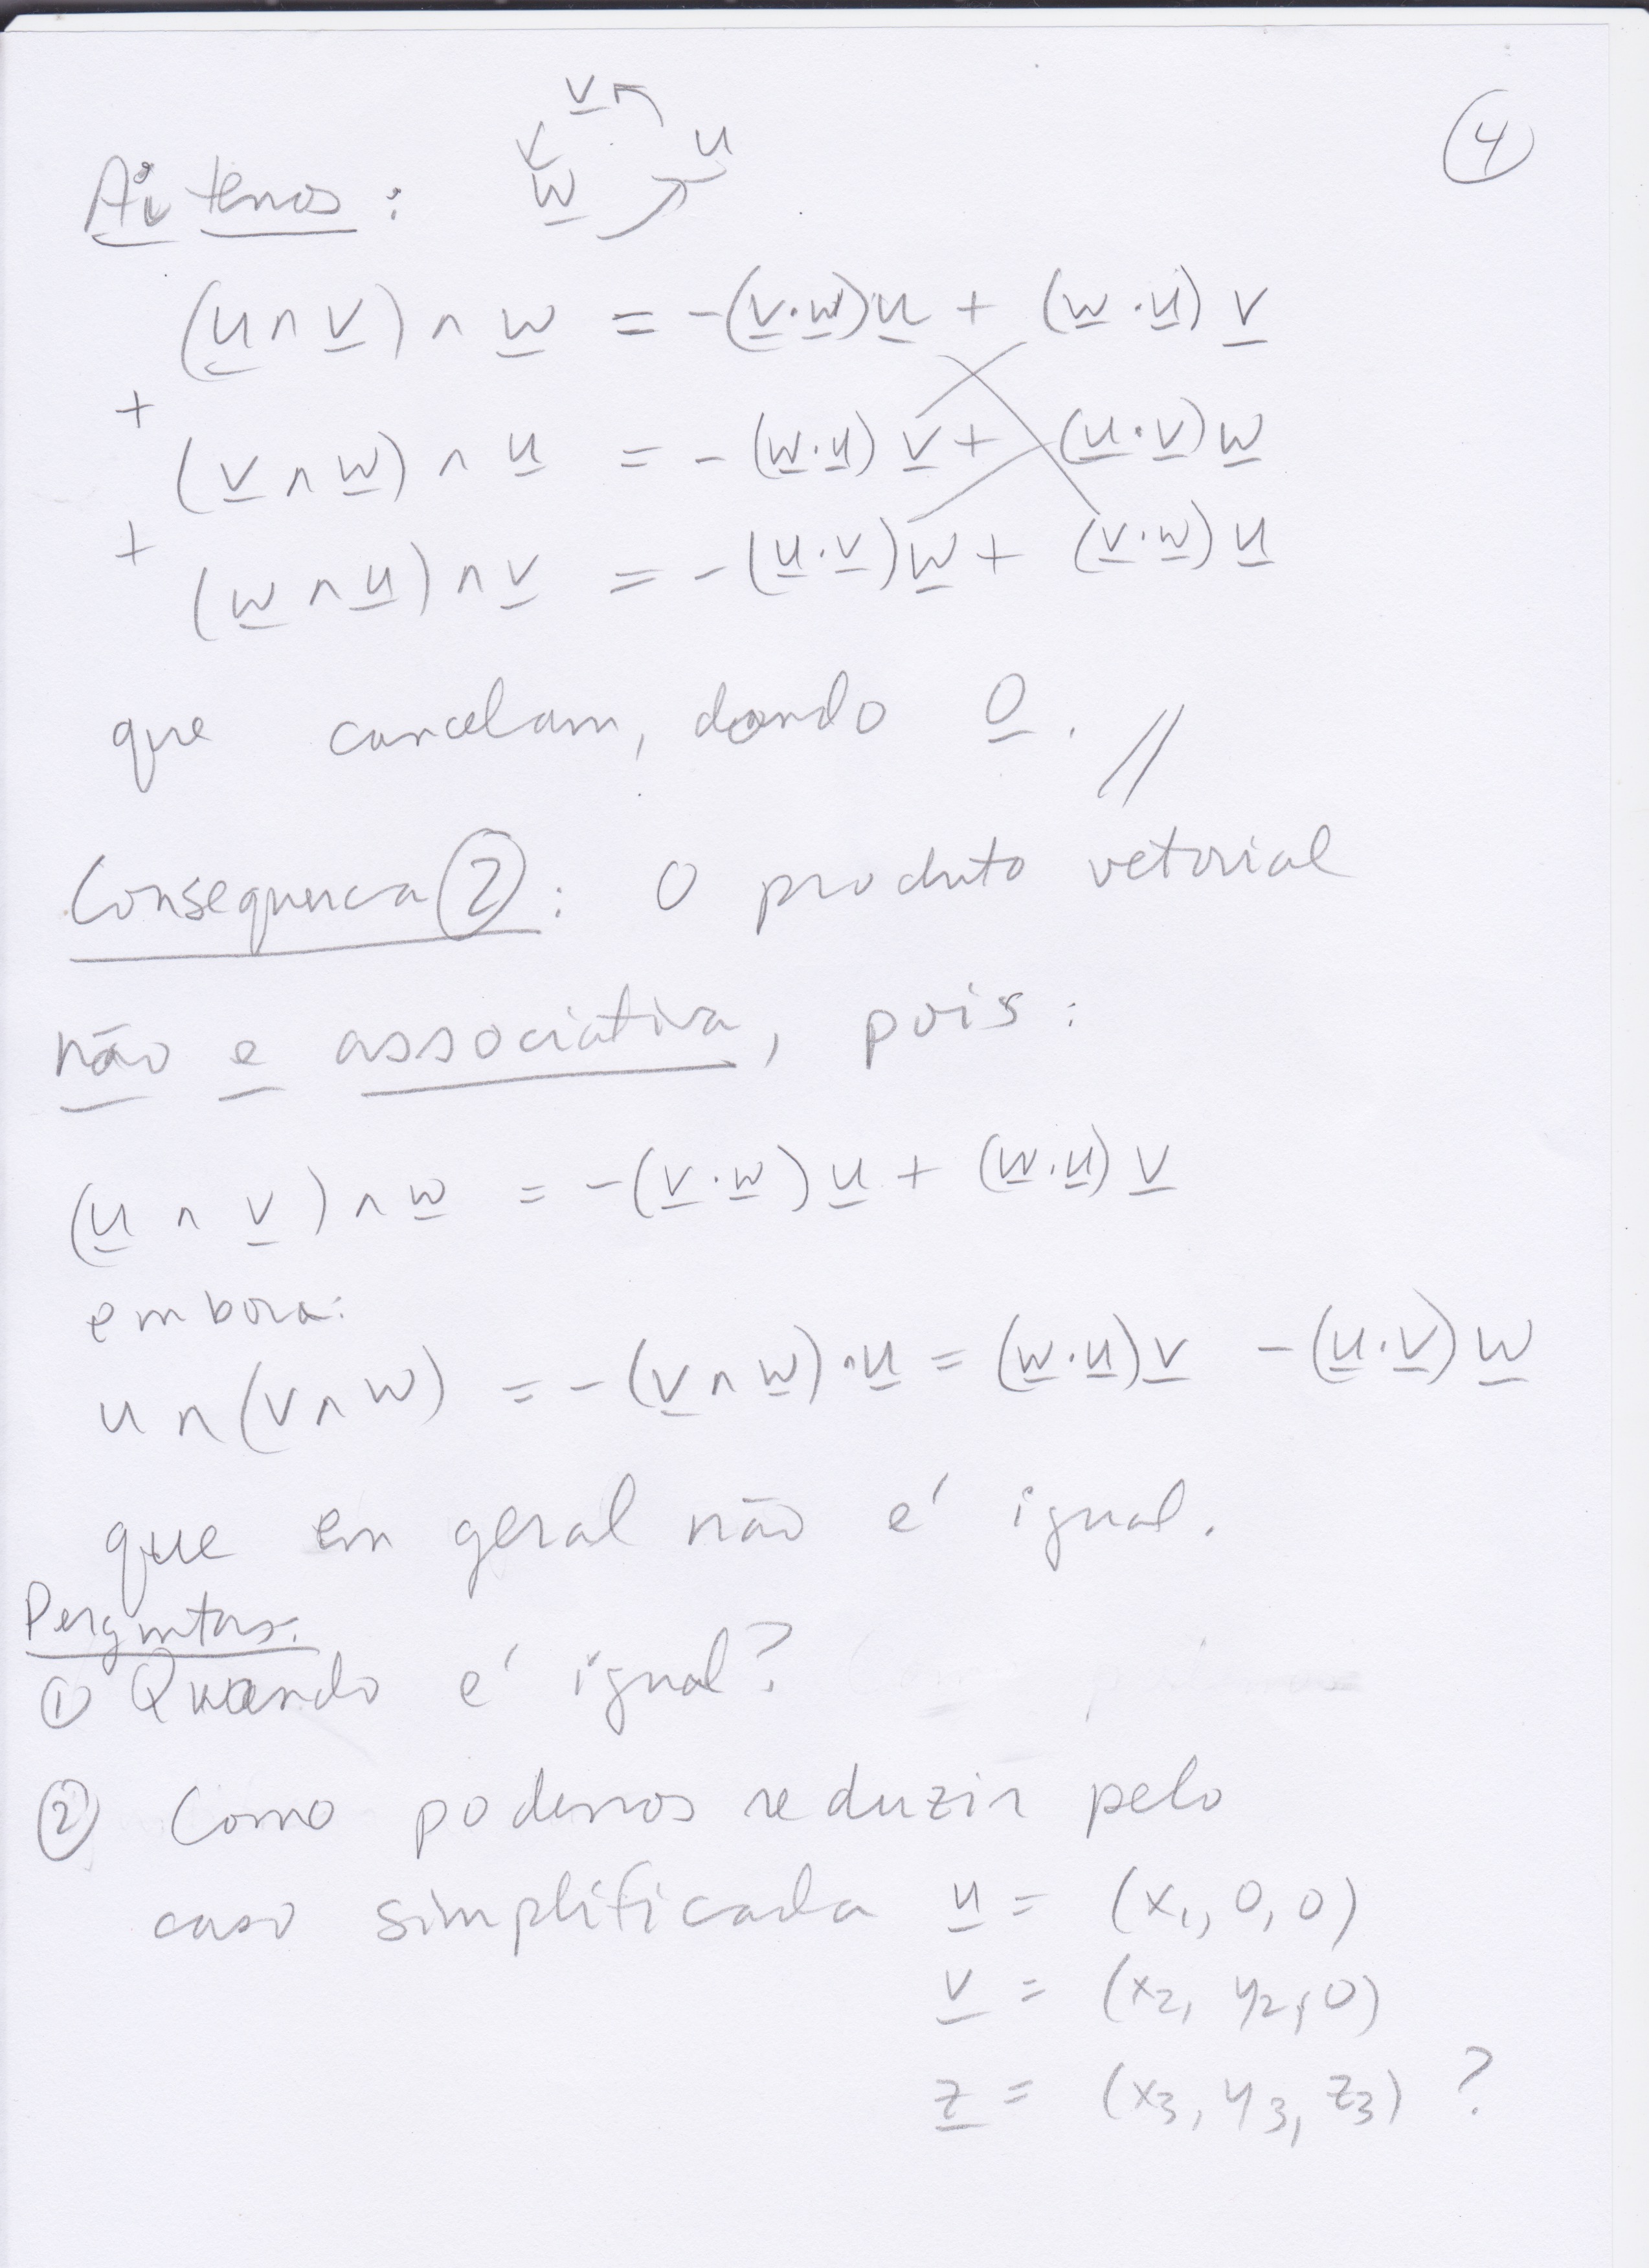 ④
v u
w
Aí temos:
(u ∧ v) ∧ w = -(v·w)u + (w·u) v
+
(v ∧ w) ∧ u = -(w·u) v + (u·v) w
+
(w ∧ u) ∧ v = -(u·v) w + (v·w) u
que cancelam, dando 0. //
Consequenca ②: O produto vetorial
não e associativa, pois:
(u ∧ v) ∧ w = -(v·w) u + (w·u) v
embora:
u ∧ (v ∧ w) = -(v ∧ w) · u = (w·u) v - (u·v) w
que em geral não é igual.
Perguntas:
① Quando é igual?
② Como podemos reduzir pelo
caso simplificada u = (x₁, 0, 0)
v = (x₂, y₂, 0)
z = (x₃, y₃, z₃) ?